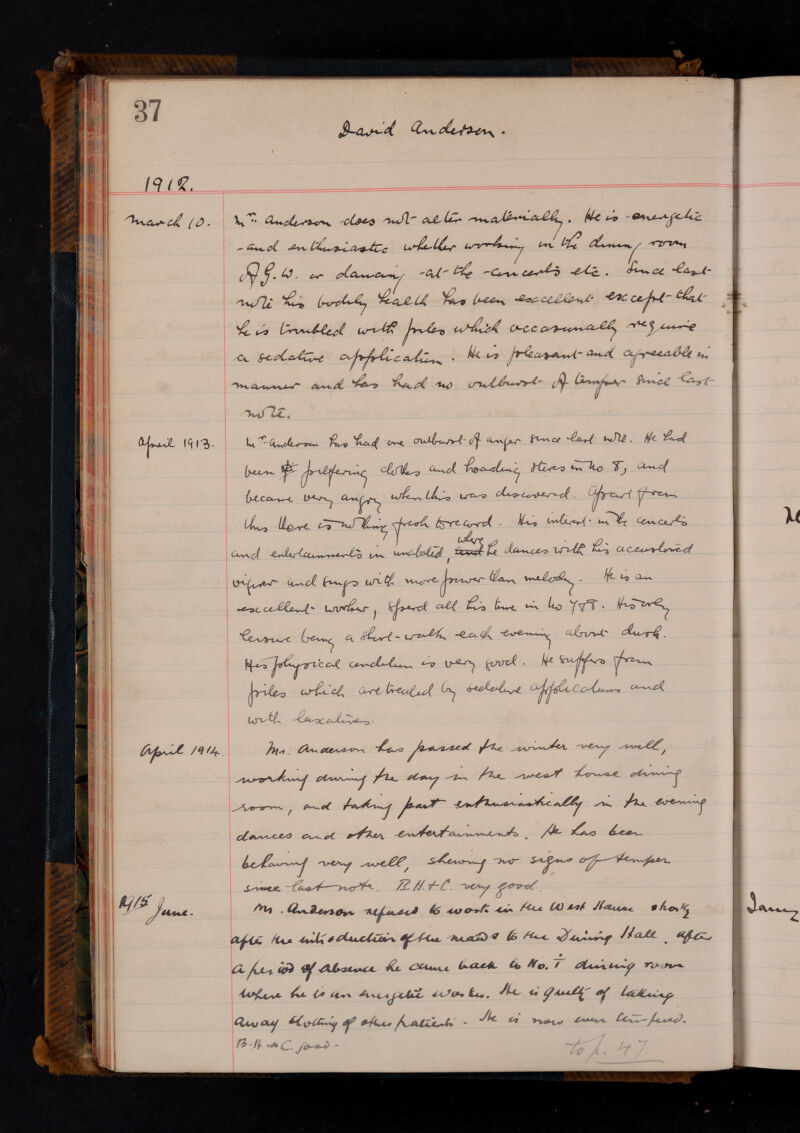 37
David Anderson.
1912.
March 10. Mr. Anderson does not alter materially. He is energetic
and enthusiastic whether working in the dining room
of G.W. or dancing at the concerts etc. Since last
note his bodily health has been excellent except that
he is troubled with piles which occasionally require
a sedative application. He is pleasant and agreeable in
manner and has had no outburst of temper since last
note.
April 1913. Mr. Anderson has had one outburst of anger since last note. He had
been pilfering clothes and hoarding stores in No 8, and
became very angry when this was discovered. Apart from
this there is nothing fresh to record. His interest in the concerts
and entertainments is unabated, where he dances with his accustomed
vigour and sings with more power than melody. He is an
excellent worker, spend all his time in No 7 & 8. His only
leisure being a short walk each evening about dusk.
His physical condition is very good. He suffers from
piles which are treated by sedative applications and
with laxatives.
April 1914. Mr. Anderson has passed the winter very well,
working during the day in the west house dining
room, and taking part enthusiastically in the evening
dances and other entertainments. He has been
behaving very well, shewing no signs of temper
since last note. B.H. & C. very good.
1915 June. Mr. Anderson refused to work in the West House shortly
after the introduction of the maids to the Dining Hall. After
a period of absence he came back to No. 1 dining room
where he is an energetic worker. He is guilty of taking
away clothing of other patients. He is now even tempered.
B.H. & C. good.
to p. 47